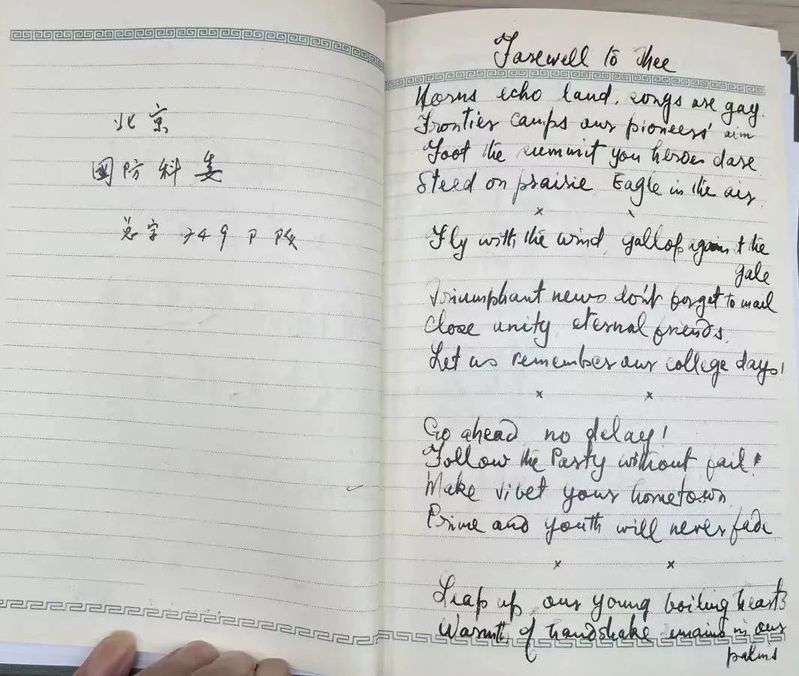 北京
國防科委
总字 749 部队
Farewell to Thee
Horns echo land, songs are gay
Frontier camps our pioneers' aim
Foot the summit you heroes dare
Steed on prairie Eagle in the air
Fly with the wind, gallop against the
gale
Triumphant news don't forget to mail
Close unity eternal friends.
Let us remember our college days!
Go ahead no delay!
Follow the Party without fail!
Make Tibet your hometown
Prime and youth will never fade
Leap up, our young boiling hearts
Warmth of handshake remains in our
palms